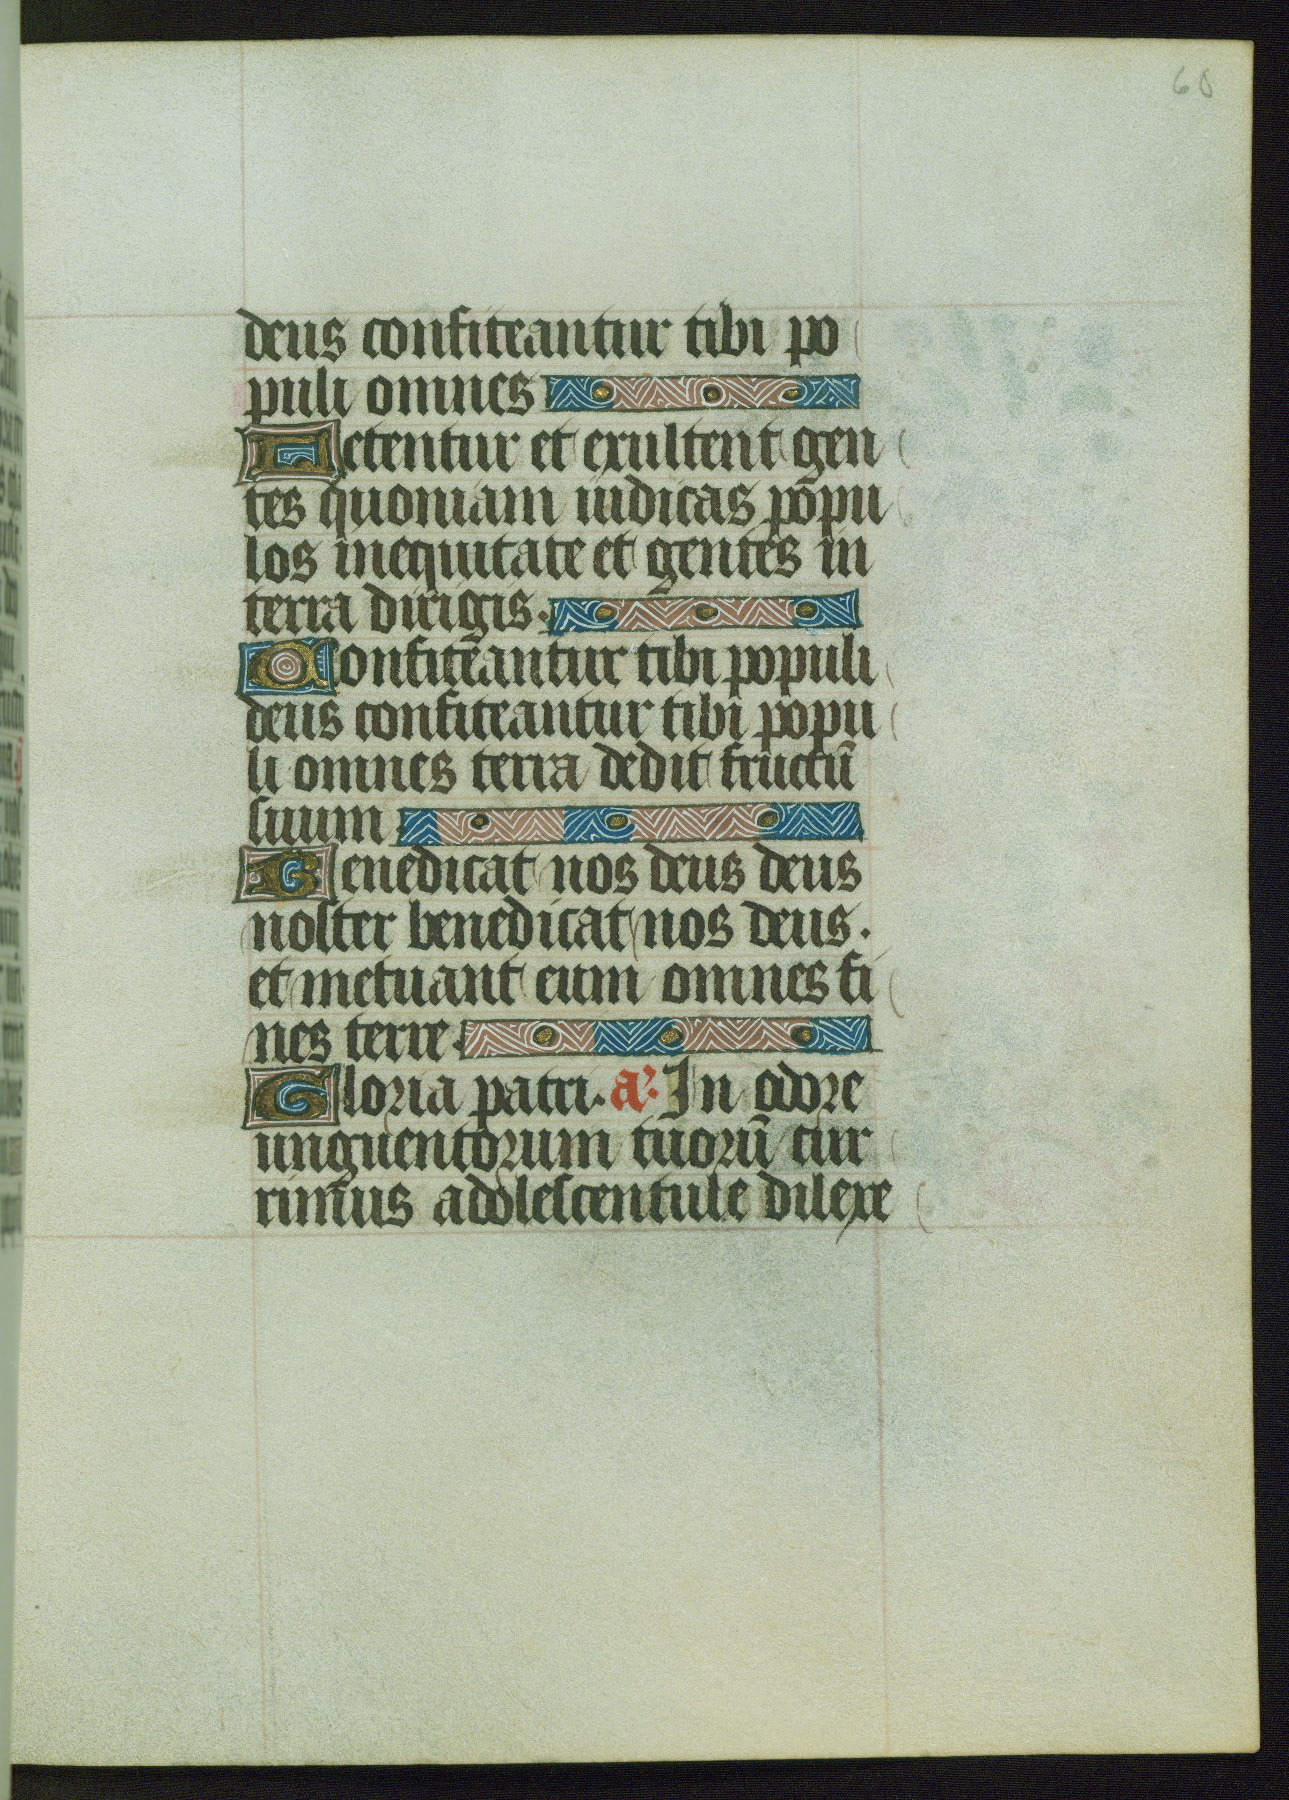 60
deus confiteantur tibi po
puli omnes
Letentur et exultent gen
tes quoniam iudicas popu
los inequitate et gentes in
terra dirigis.
Confiteantur tibi populi
deus confiteantur tibi popu
li omnes terra dedit fructū
suum
Benedicat nos deus deus
noster benedicat nos deus.
et metuant eum omnes fi
nes terre.
Gloria patri. a. In odore
unguentorum tuorū cur
rimus adolescentule dilexe